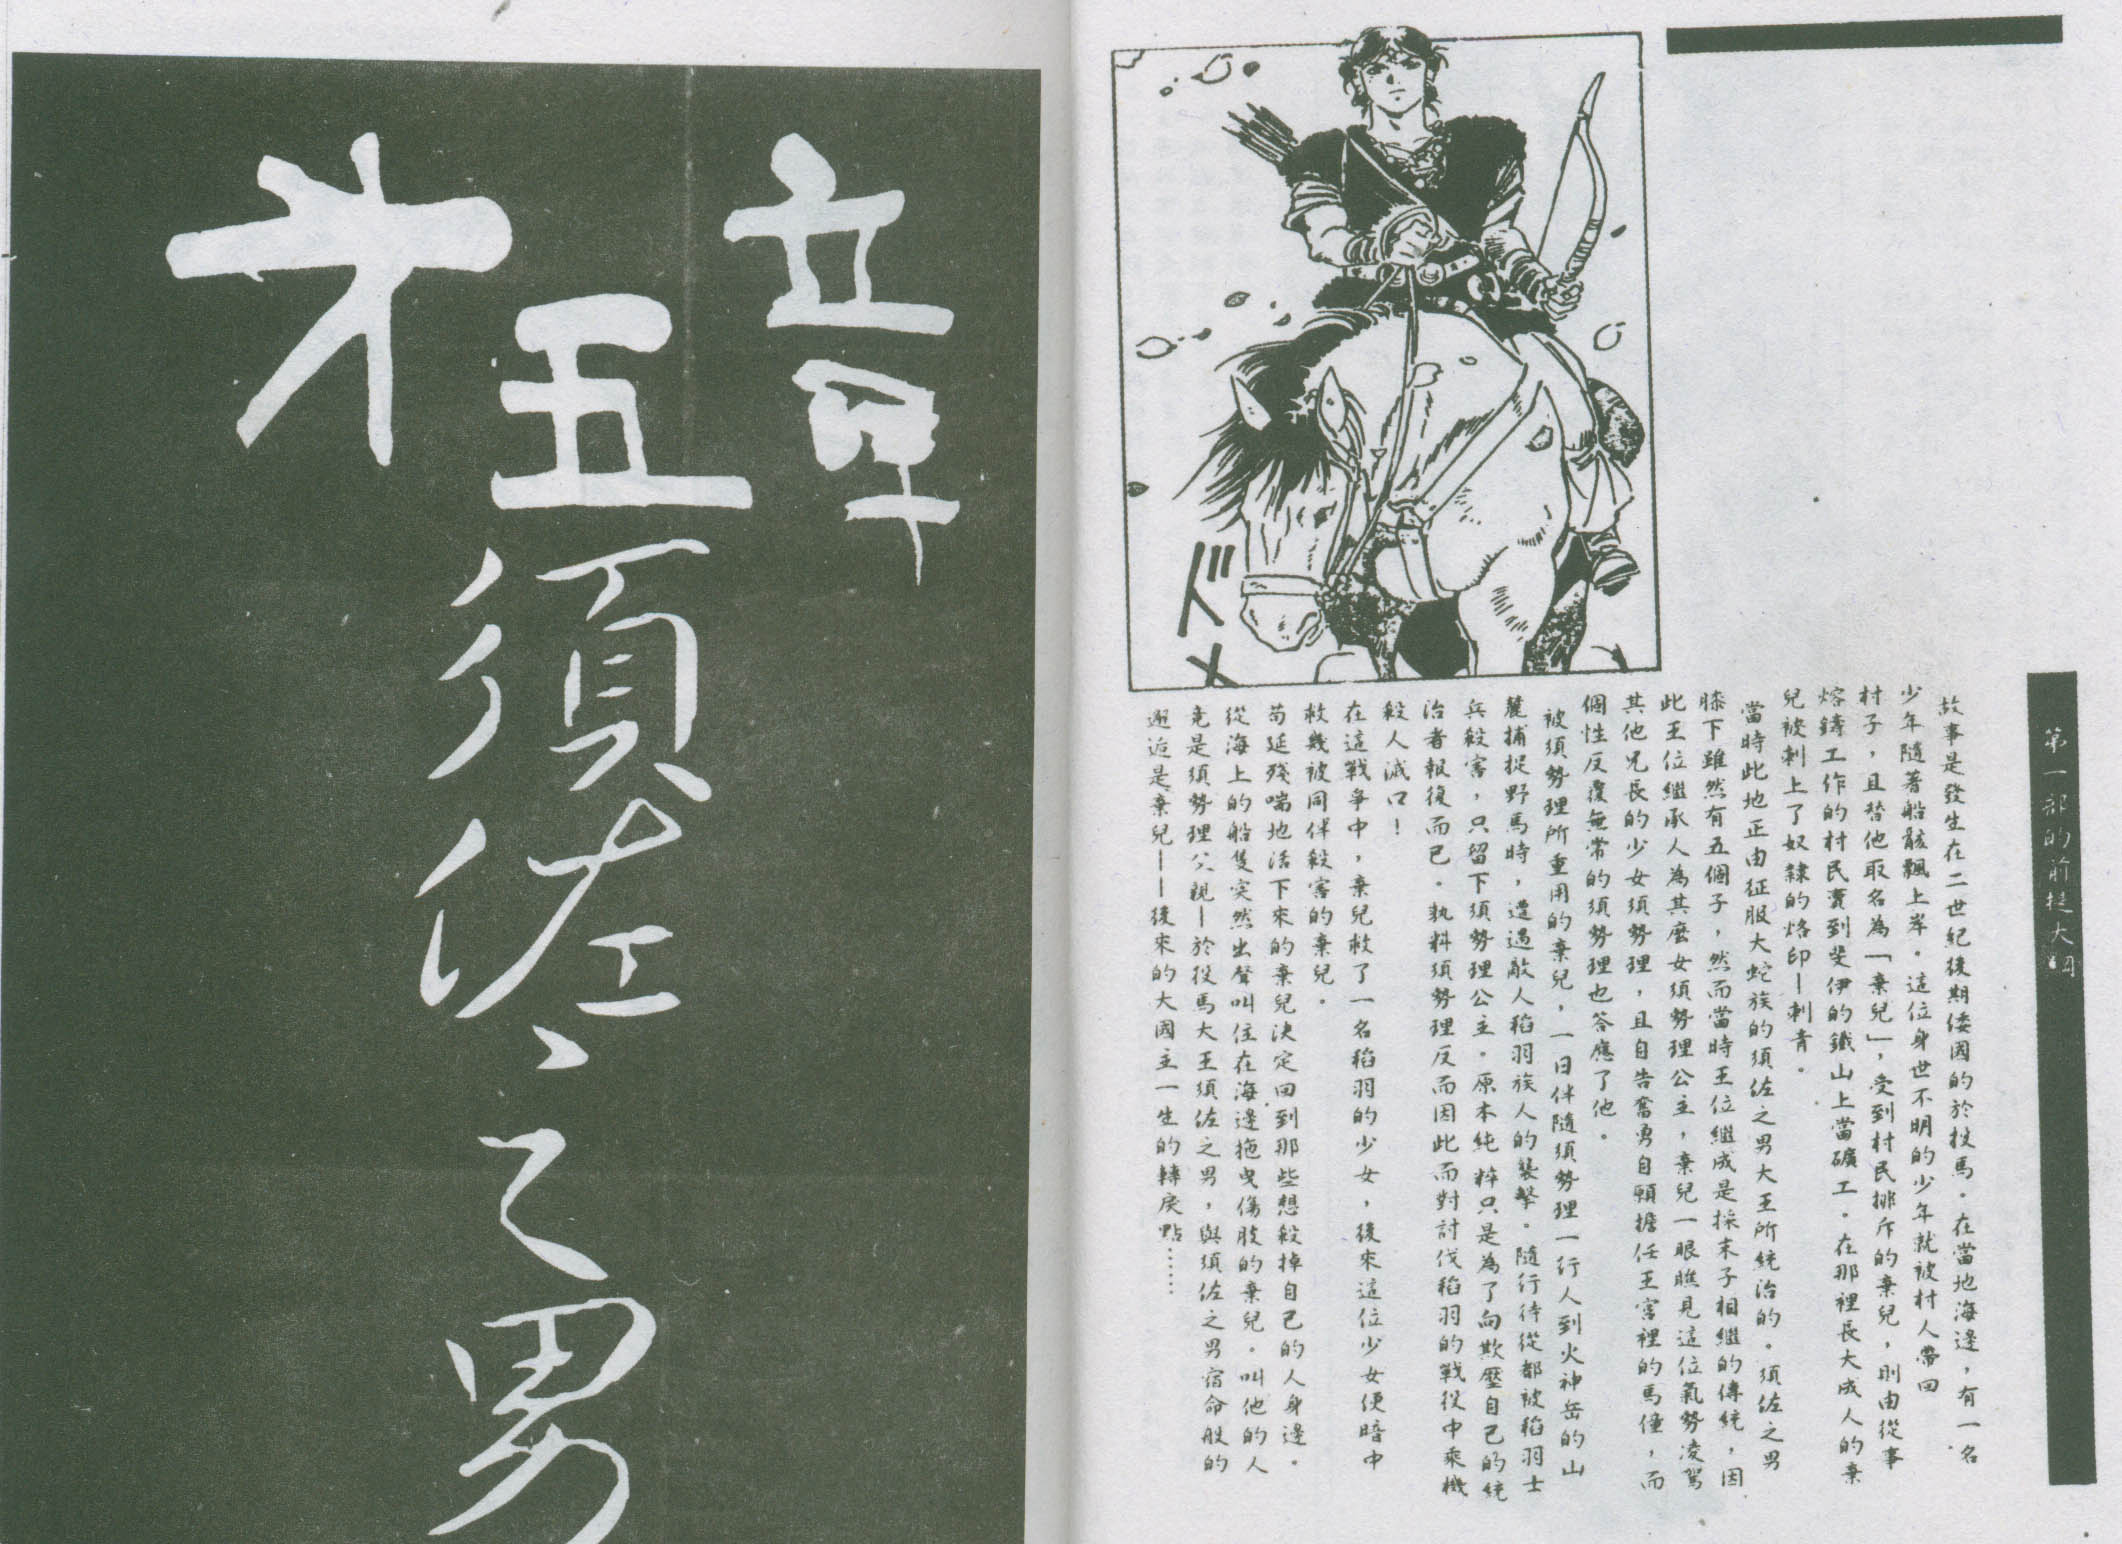 第一部的前提大綱
故事是發生在二世紀後期倭國的於投馬。在當地海邊，有一名
少年隨著船骸飄上岸。這位身世不明的少年就被村人帶回
村子，且替他取名為「棄兒」，受到村民排斥的棄兒，則由從事
熔鑄工作的村民賣到斐伊的鐵山上當礦工。在那裡長大成人的棄
兒被刺上了奴隸的烙印—刺青。
當時此地正由征服大蛇族的須佐之男大王所統治的。須佐之男
膝下雖然有五個子，然而當時王位繼成是採末子相繼的傳統，因
此王位繼承人為其麼女須勢理公主，棄兒一眼瞧見這位氣勢凌駕
其他兄長的少女須勢理，且自告奮勇自願擔任王宮裡的馬僮，而
個性反覆無常的須勢理也答應了他。
被須勢理所重用的棄兒，一日伴隨須勢理一行人到火神岳的山
麓捕捉野馬時，遭遇敵人稻羽族人的襲擊。隨行待從都被稻羽士
兵殺害，只留下須勢理公主。原本純粹只是為了向欺壓自己的統
治者報復而已。孰料須勢理反而因此而對討伐稻羽的戰役中乘機
殺人滅口！
在這戰爭中，棄兒救了一名稻羽的少女，後來這位少女便暗中
救幾被同伴殺害的棄兒。
苟延殘喘地活下來的棄兒決定回到那些想殺掉自己的人身邊。
從海上的船隻突然出聲叫住在海邊拖曳傷肢的棄兒。叫他的人
竟是須勢理父親—於投馬大王須佐之男，與須佐之男宿命般的
邂逅是棄兒——後來的大國主一生的轉戾點……
ドメ
第五章
須佐之男